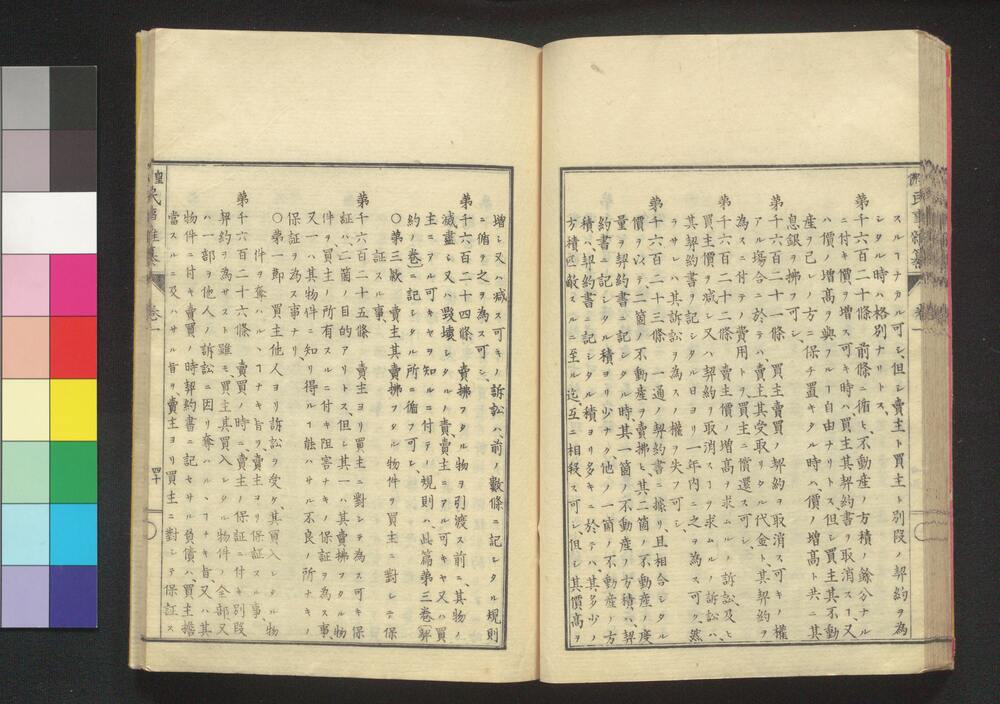 スルヿナカル可シ、但シ賣主ト買主ト別段ノ契約ヲ為
シタル時ハ格別ナリトス、
第千六百二十條　前條ニ循ヒ、不動産ノ方積ノ餘分ナル
ニ付キ價ヲ増ス可キ時ハ、買主其契約書ヲ取消スヿ又
ハ價ノ増高ヲ與フルヿ自由ナリトス、但シ買主其不動
産ヲ己レノ方ニ保チ置キタル時ハ、價ノ増高ト共ニ其
息銀ヲ拂フ可シ、
第千六百二十一條　買主賣買ノ契約ヲ取消ス可キノ權
アル場合ニ於テハ、賣主其受取リタル代金ト、其契約ヲ
為スニ付テノ費用トヲ、買主ニ償還ス可シ、
第千六百二十二條　賣主價ノ増高ヲ求ムルノ訴訟及ヒ
買主價ヲ減シ又ハ契約ヲ取消スヿヲ求ムルノ訴訟ハ、
其契約書ヲ記シタル日ヨリ一年内ニ之ヲ為ス可ク、然
ラサレハ其訴訟ヲ為スノ權ヲ失フ可シ、
第千六百二十三條　一通ノ契約書ニ據リ且相合シタル
價ヲ以テ、二箇ノ不動産ヲ賣拂ヒ、其二箇ノ不動産ノ度
量ヲ契約書ニ記シタル時、其一箇ノ不動産ノ方積ハ、契
約書ニ記シタル積ヨリ少ナク、他ノ一箇ノ不動産ノ方
積ハ、契約書ニ記シタル積ヨリ多キニ於テハ、其多少ノ
方積匹敵スルニ至ル迄、互ニ相殺ス可シ、但シ其價高ヲ
増シ又ハ減ス可キノ訴訟ハ、前ノ數條ニ記シタル規則
ニ循ヒ之ヲ為ス可シ、
第千六百二十四條　賣拂フタル物ヲ引渡ス前ニ、其物ノ
滅盡シ又ハ毀壊シタルノ責、賣主ニアル可キヤ又ハ買
主ニアル可キヤヲ知ルニ付テノ規則ハ、此篇第三卷（契
約ノ卷）ニ記シタル所ニ循フ可シ、
〇第三款　賣主其賣拂フタル物件ヲ買主ニ對シテ保
證スル事、
第千六百二十五條　賣主ヨリ買主ニ對シテ為ス可キ保
証ハ、二箇ノ目的アリトス、但シ其一ハ其賣拂フタル物
件ヲ買主ノ所有スルニ付キ阻害ナキノ保証ヲ為ス事、
又一ハ其物件ニ知リ得ルヿ能ハサル不良ノ所ナキノ
保証ヲ為ス事ナリ、
〇第一節　買主他人ヨリ訴訟ヲ受ケ、其買入レタル物
件ヲ奪ハルヽヿナキ旨ヲ、賣主ヨリ保証スル事、
第千六百二十六條　賣買ノ時ニ、賣主ノ保証ニ付キ別段
ノ契約ヲ為サスト雖モ、買主其買入レタル物件ノ全部又
ハ一部ヲ他人ノ訴訟ニ因リ奪ハルヽヿナキ旨、又ハ其
物件ニ付キ賣買ノ時契約書ニ記セサル負債ハ、買主擔
當スルニ及ハサル旨ヲ、賣主ヨリ買主ニ對シテ保証ス
卷一
四十